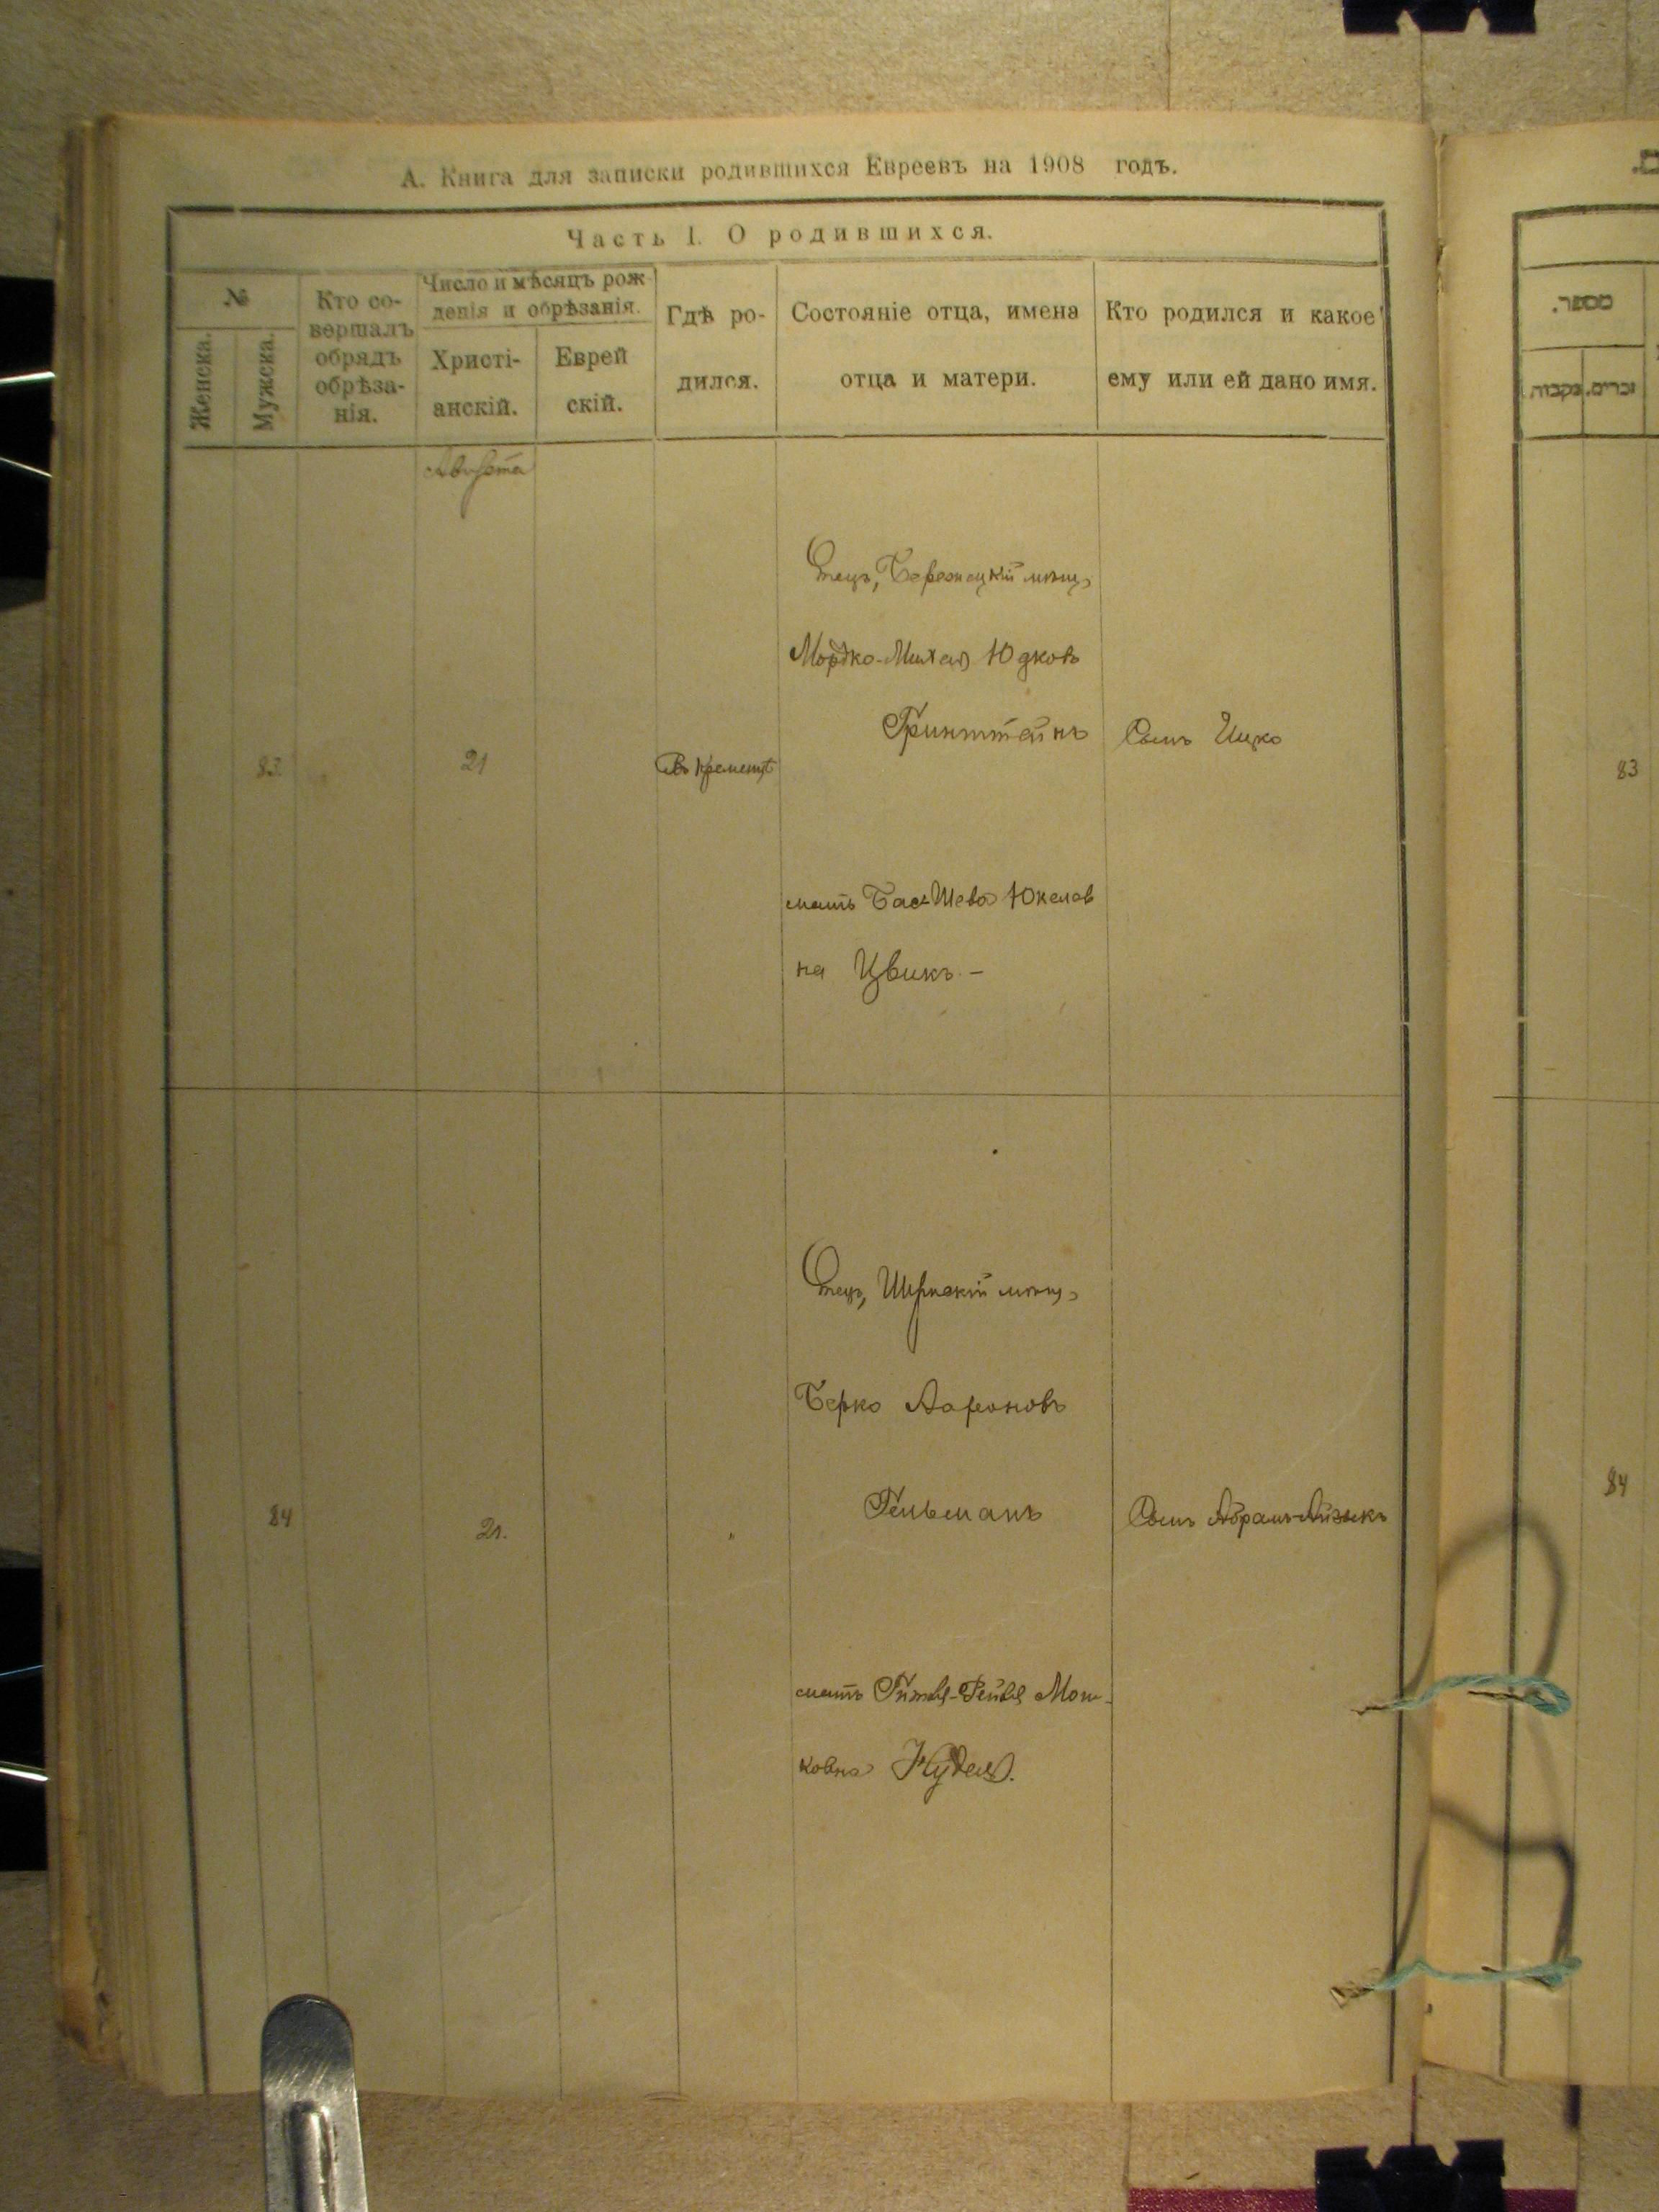 А. Книга для записки родившихся Евреевъ на 1908 годъ.
Часть I. О родившихся.
№
Женска.
Мужска.
Кто со-
вершалъ
обрядъ
обрѣза-
нія.
Число и мѣсяцъ рож
денія и обрѣзанія.
Христі-
анскій.
Еврей
скій.
Гдѣ ро-
дился.
Состояніе отца, имена
отца и матери.
Кто родился и какое
ему или ей дано имя.
Августа
83.
21
Въ Кременцѣ
Отецъ, мѣщ.
Мордко-Михель Юдковъ
Гринштейнъ
мать Бас-Шева Юкелев
на Цвикъ. –
Сынъ Ицко
84
21.
"
Отецъ, Шумскій мѣщ.
Берко Аароновъ
Гельманъ
мать Мош-
ковна
Сынъ Абрамъ-Айзыкъ
מספר.
זכרים.
נקבות.
83
84